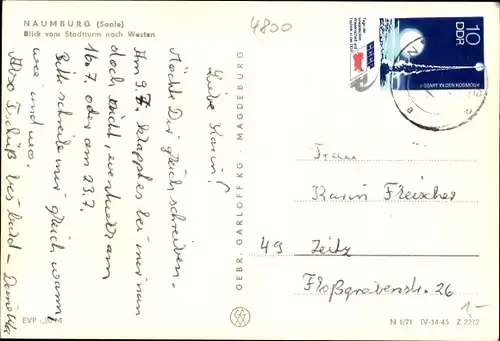 NAUMBURG (Saale)
Blick vom Stadtturm nach Westen
4800
Liebe Karin!
Möchte Dir gleich schreiben.
Am 9.7. klappt es bei mir nun
doch nicht, eventuell am
16.7. oder am 23.7.
Bitte schreibe mir gleich wann,
wie und wo.
Also Tschüß bis bald - Deine
GEBR. GARLOFF KG · MAGDEBURG
10
DDR
START IN DEN KOSMOS
Frau
Karin Fleischer
49 Zeitz
Floßgrabenstr. 26
1,-
EVP -,20 M
N 1/71 IV-14-45 Z 2272